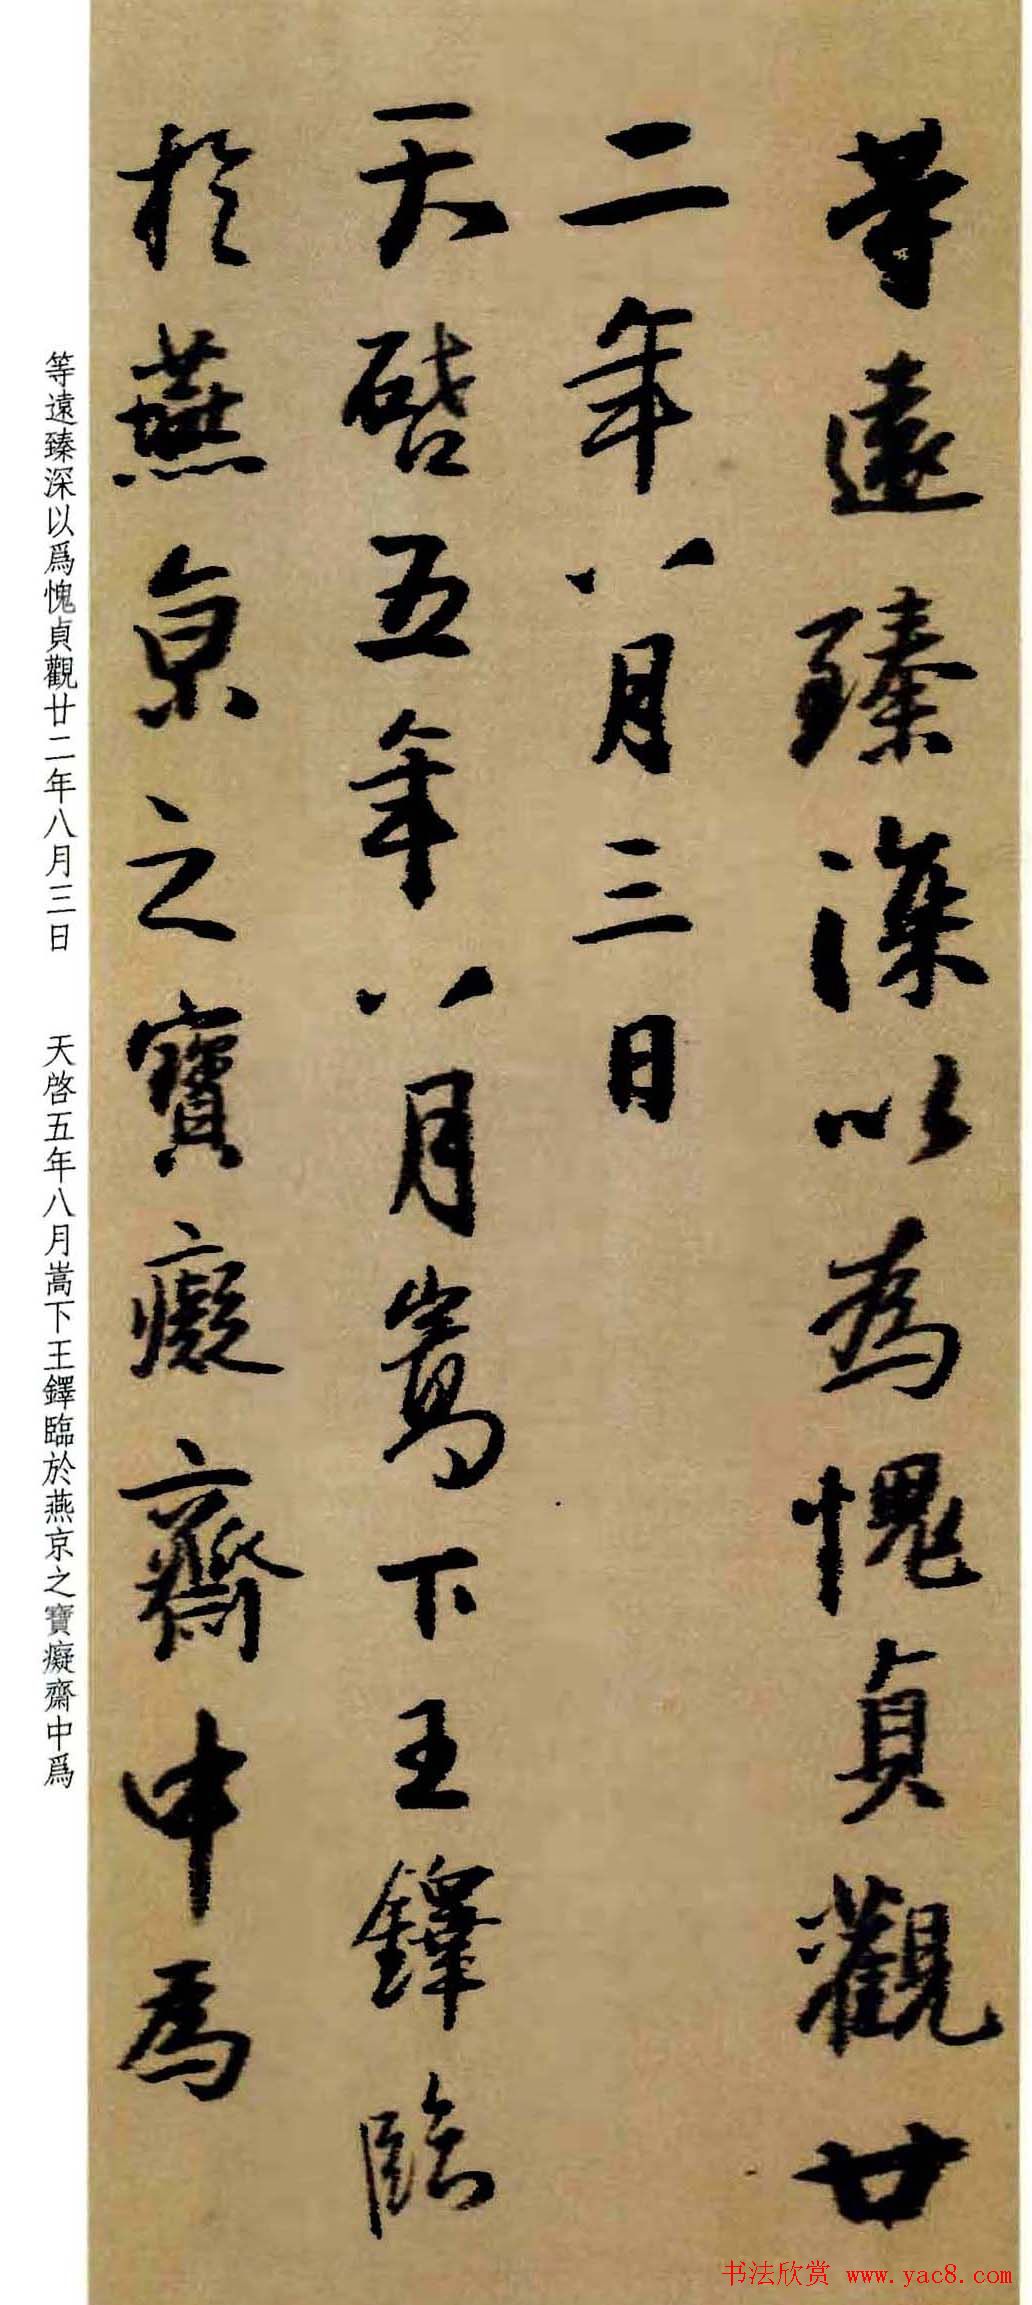 等遠臻深以為愧貞觀廿
二年八月三日
天啓五年八月嵩下王鐸臨
於燕京之寶癡齋中為
等遠臻深以爲愧貞觀廿二年八月三日 天啓五年八月嵩下王鐸臨於燕京之寶癡齋中爲
书法欣赏 www.yac8.com